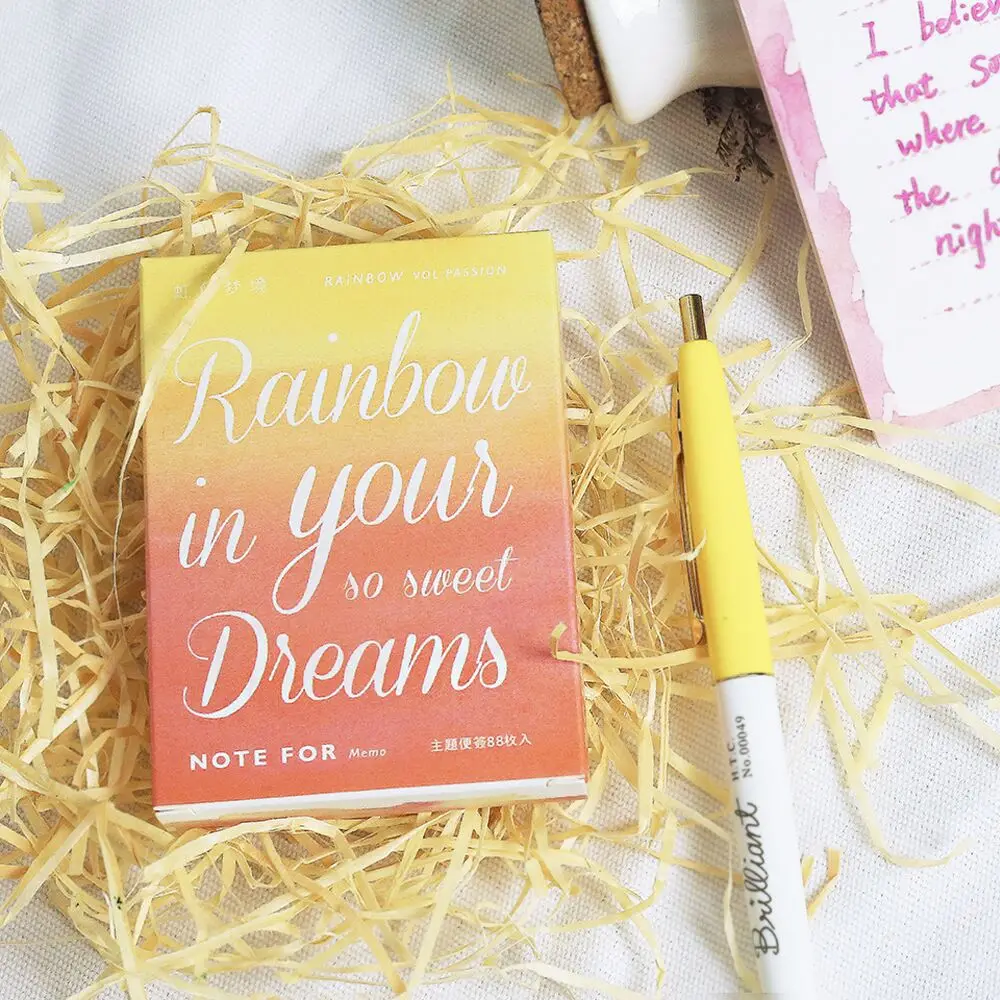 RAINBOW VOL·PASSION
Rainbow
in your
so sweet
Dreams
NOTE FOR Memo 主題便簽88枚入
I believ
that so
where
the d
nigh
H.T.C
No.00049
Brilliant